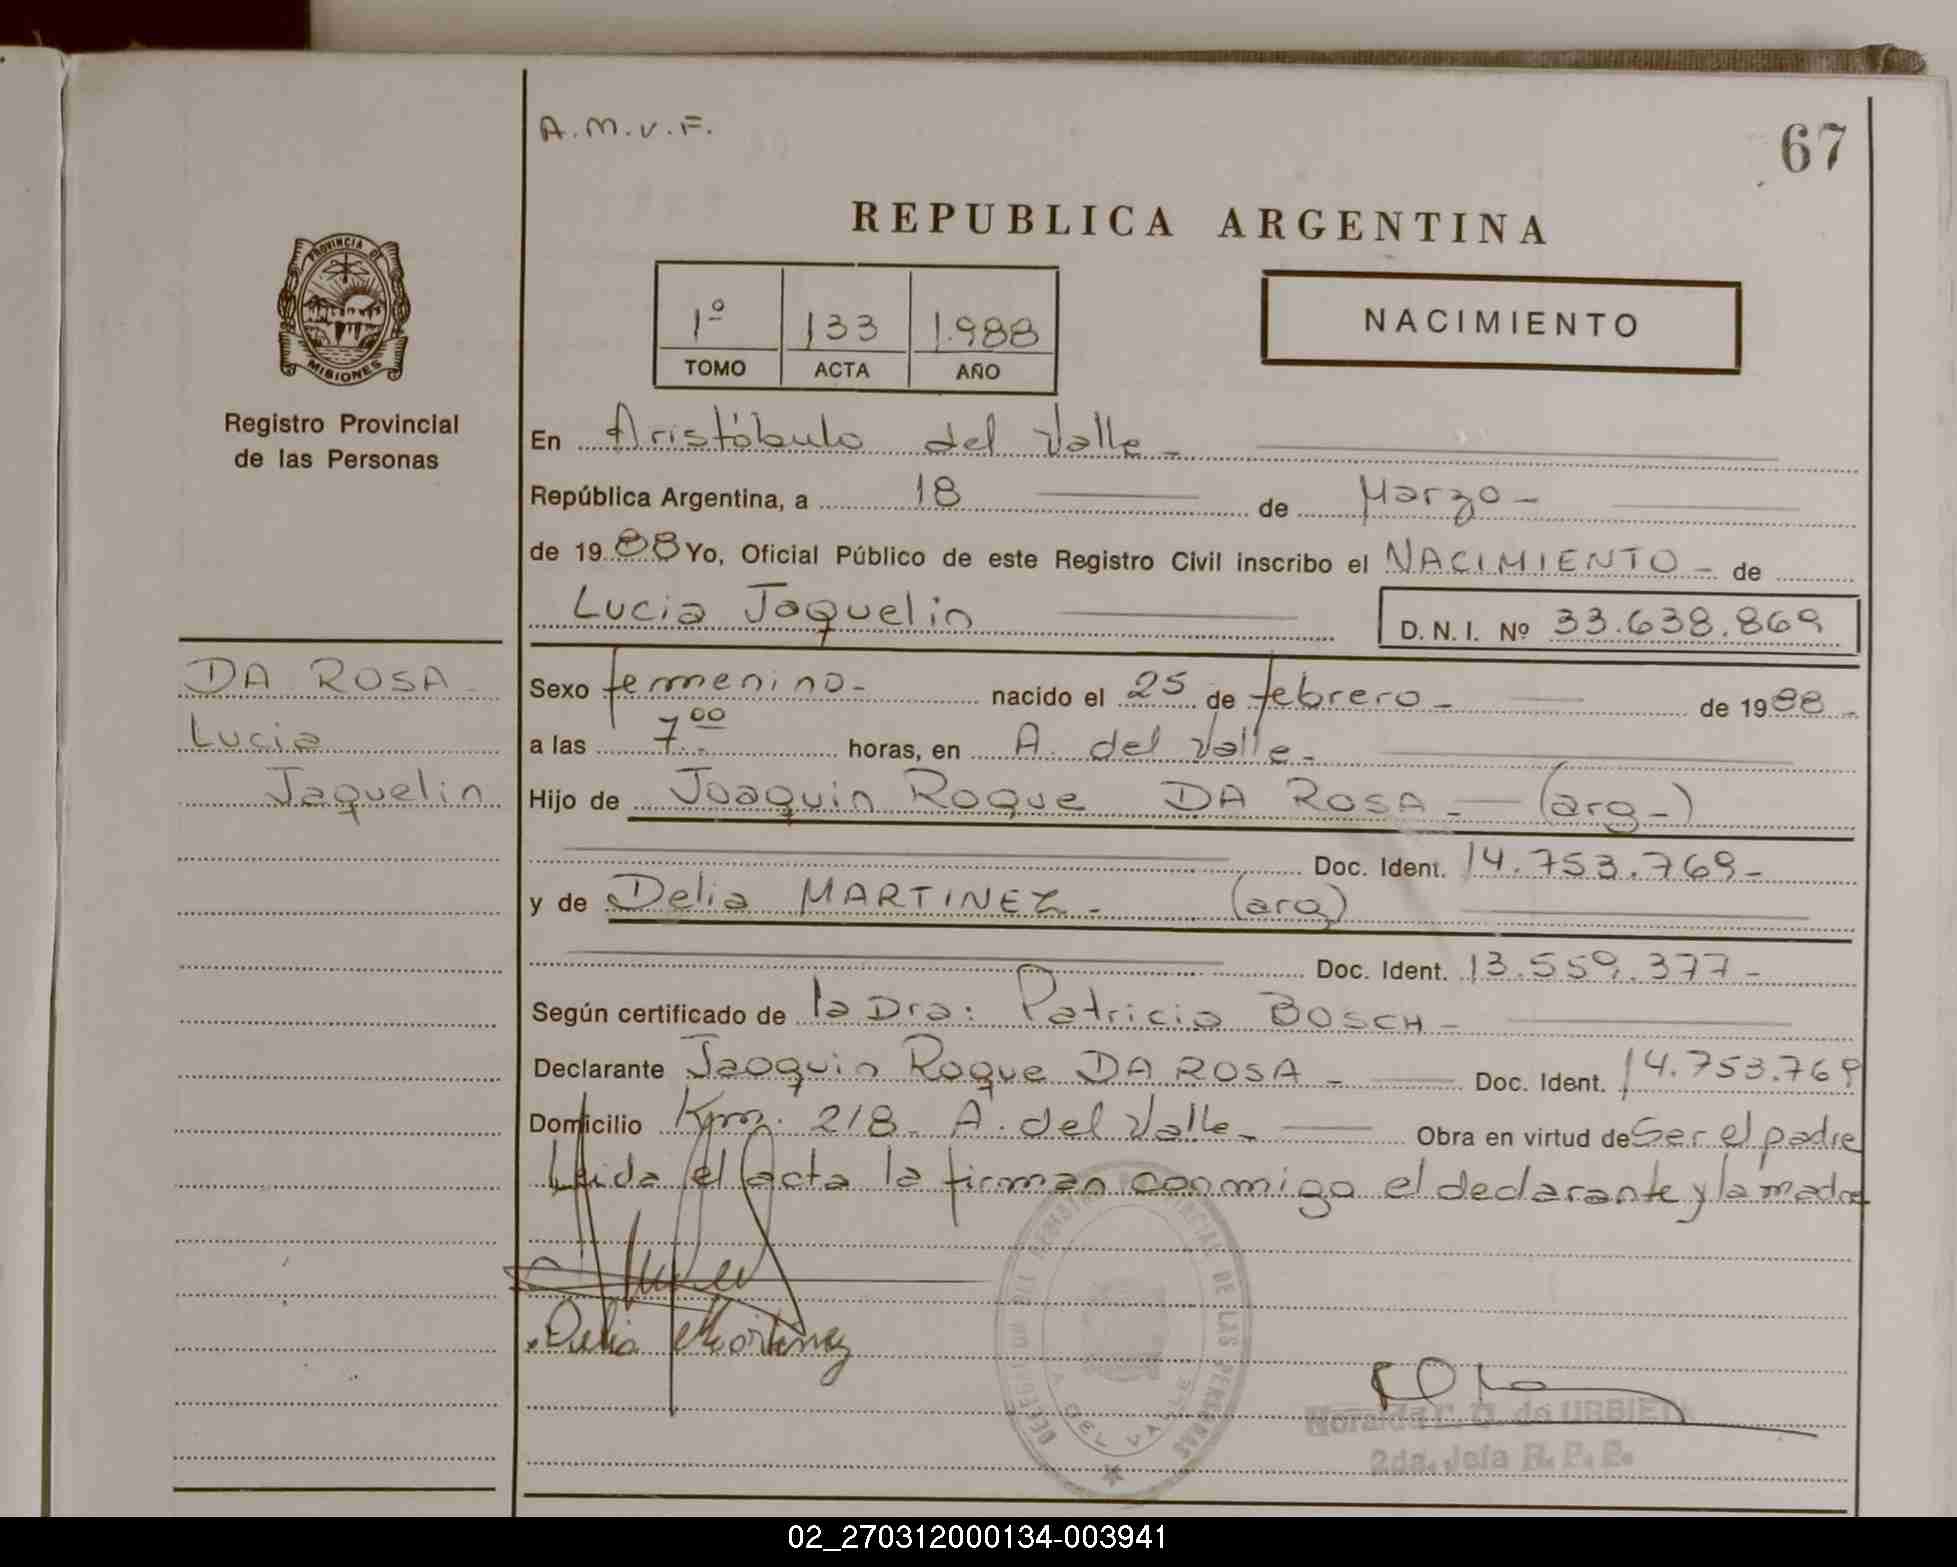 A.M.V.F.
67
REPUBLICA ARGENTINA
PROVINCIA DE
MISIONES
Registro Provincial
de las Personas
1º 133 1.988
TOMO ACTA AÑO
NACIMIENTO
En Aristóbulo del Valle-
República Argentina, a 18 de Marzo-
de 1988 Yo, Oficial Público de este Registro Civil inscribo el NACIMIENTO- de
Lucia Jaquelin D. N. I. Nº 33.638.869
DA ROSA-
Lucia
Jaquelin
Sexo femenino- nacido el 25 de febrero- de 1988-
a las 7.00 horas, en A. del Valle-
Hijo de Joaquin Roque DA ROSA- (arg-)
Doc. Ident. 14.753.769-
y de Delia MARTINEZ- (arg)
Doc. Ident. 13.559.377-
Según certificado de la Dra: Patricia BOSCH-
Declarante Jaoquin Roque DA ROSA- Doc. Ident. 14.753.769
Domicilio Km. 218- A. del Valle- Obra en virtud de Ser el padre
Leida el acta la firman conmigo el declarante y la madre
Delia Martinez
DEL REGISTRO PROVINCIAL DE LAS PERSONAS
DEL VALLE
de URBIETA
2da. Jefa R. P. P.
02_270312000134-003941